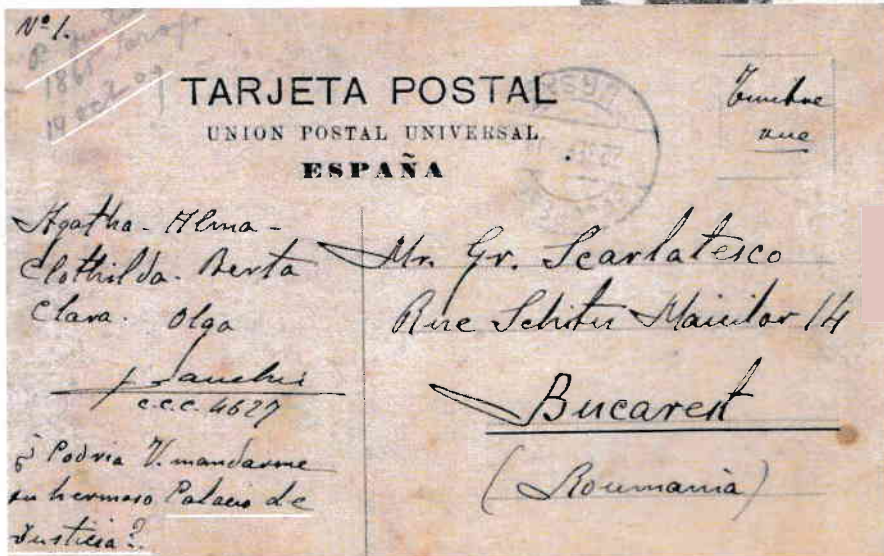 Nº 1.
1865
14 oct 09
TARJETA POSTAL
UNION POSTAL UNIVERSAL
ESPAÑA
Timbre
vue
Agatha - Alma -
Clothilda. Berta
Clara. Olga
c.c.c. 4627
¿Podria V. mandarme
su hermoso Palacio de
Justicia?
Mr. Gr. Scarlatesco
Rue Schitu Maicilor 14
Bucarest
(Roumania)